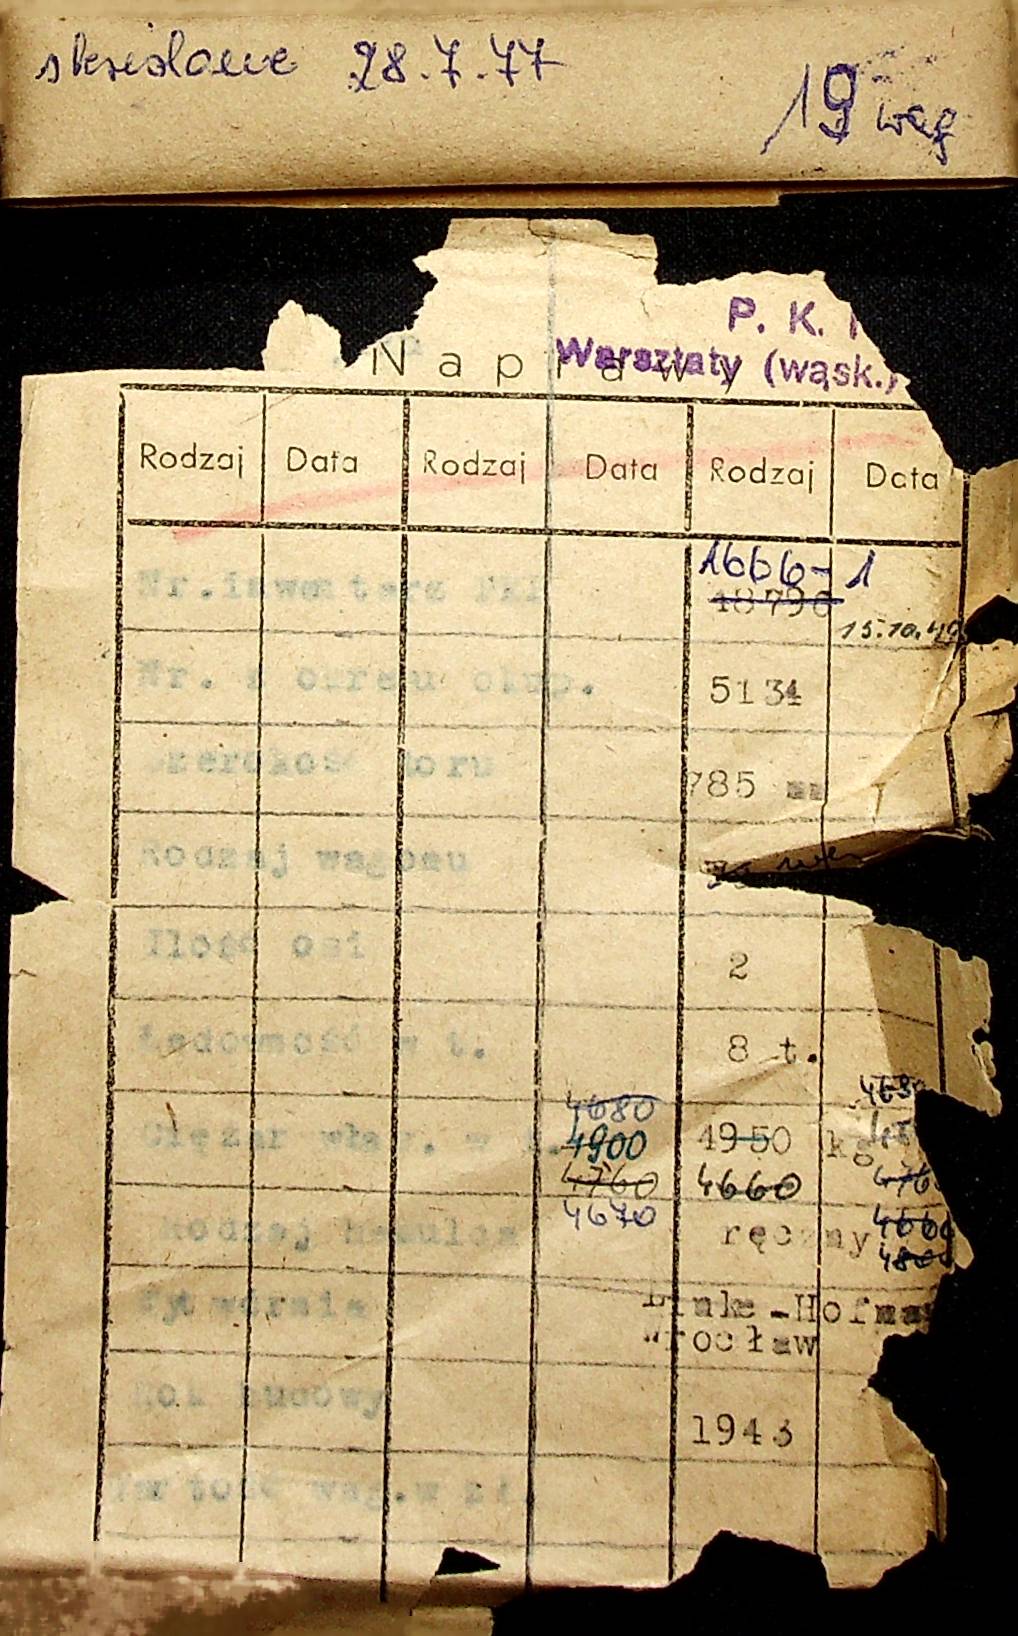 skreślone 28.7.77
19 wag
P. K.
Warsztaty (wąsk.)
Naprawy
Rodzaj Data Rodzaj Data Rodzaj Data
1666-1
Nr. inwentarz PKP 18796
15.10.49
Nr. z okresu okup. 5134
Szerokość toru 785 mm
Rodzaj wagonu
Ilość osi 2
Ładowność w t. 8 t.
4680 4680
Ciężar włas. w t. 4900 4950 kg
4760 4660 476
4670 4660
Rodzaj hamulca ręczny
480
Wytwórnia Linke-Hofma
Wrocław
Rok budowy 1943
Wartość wag. w zł.